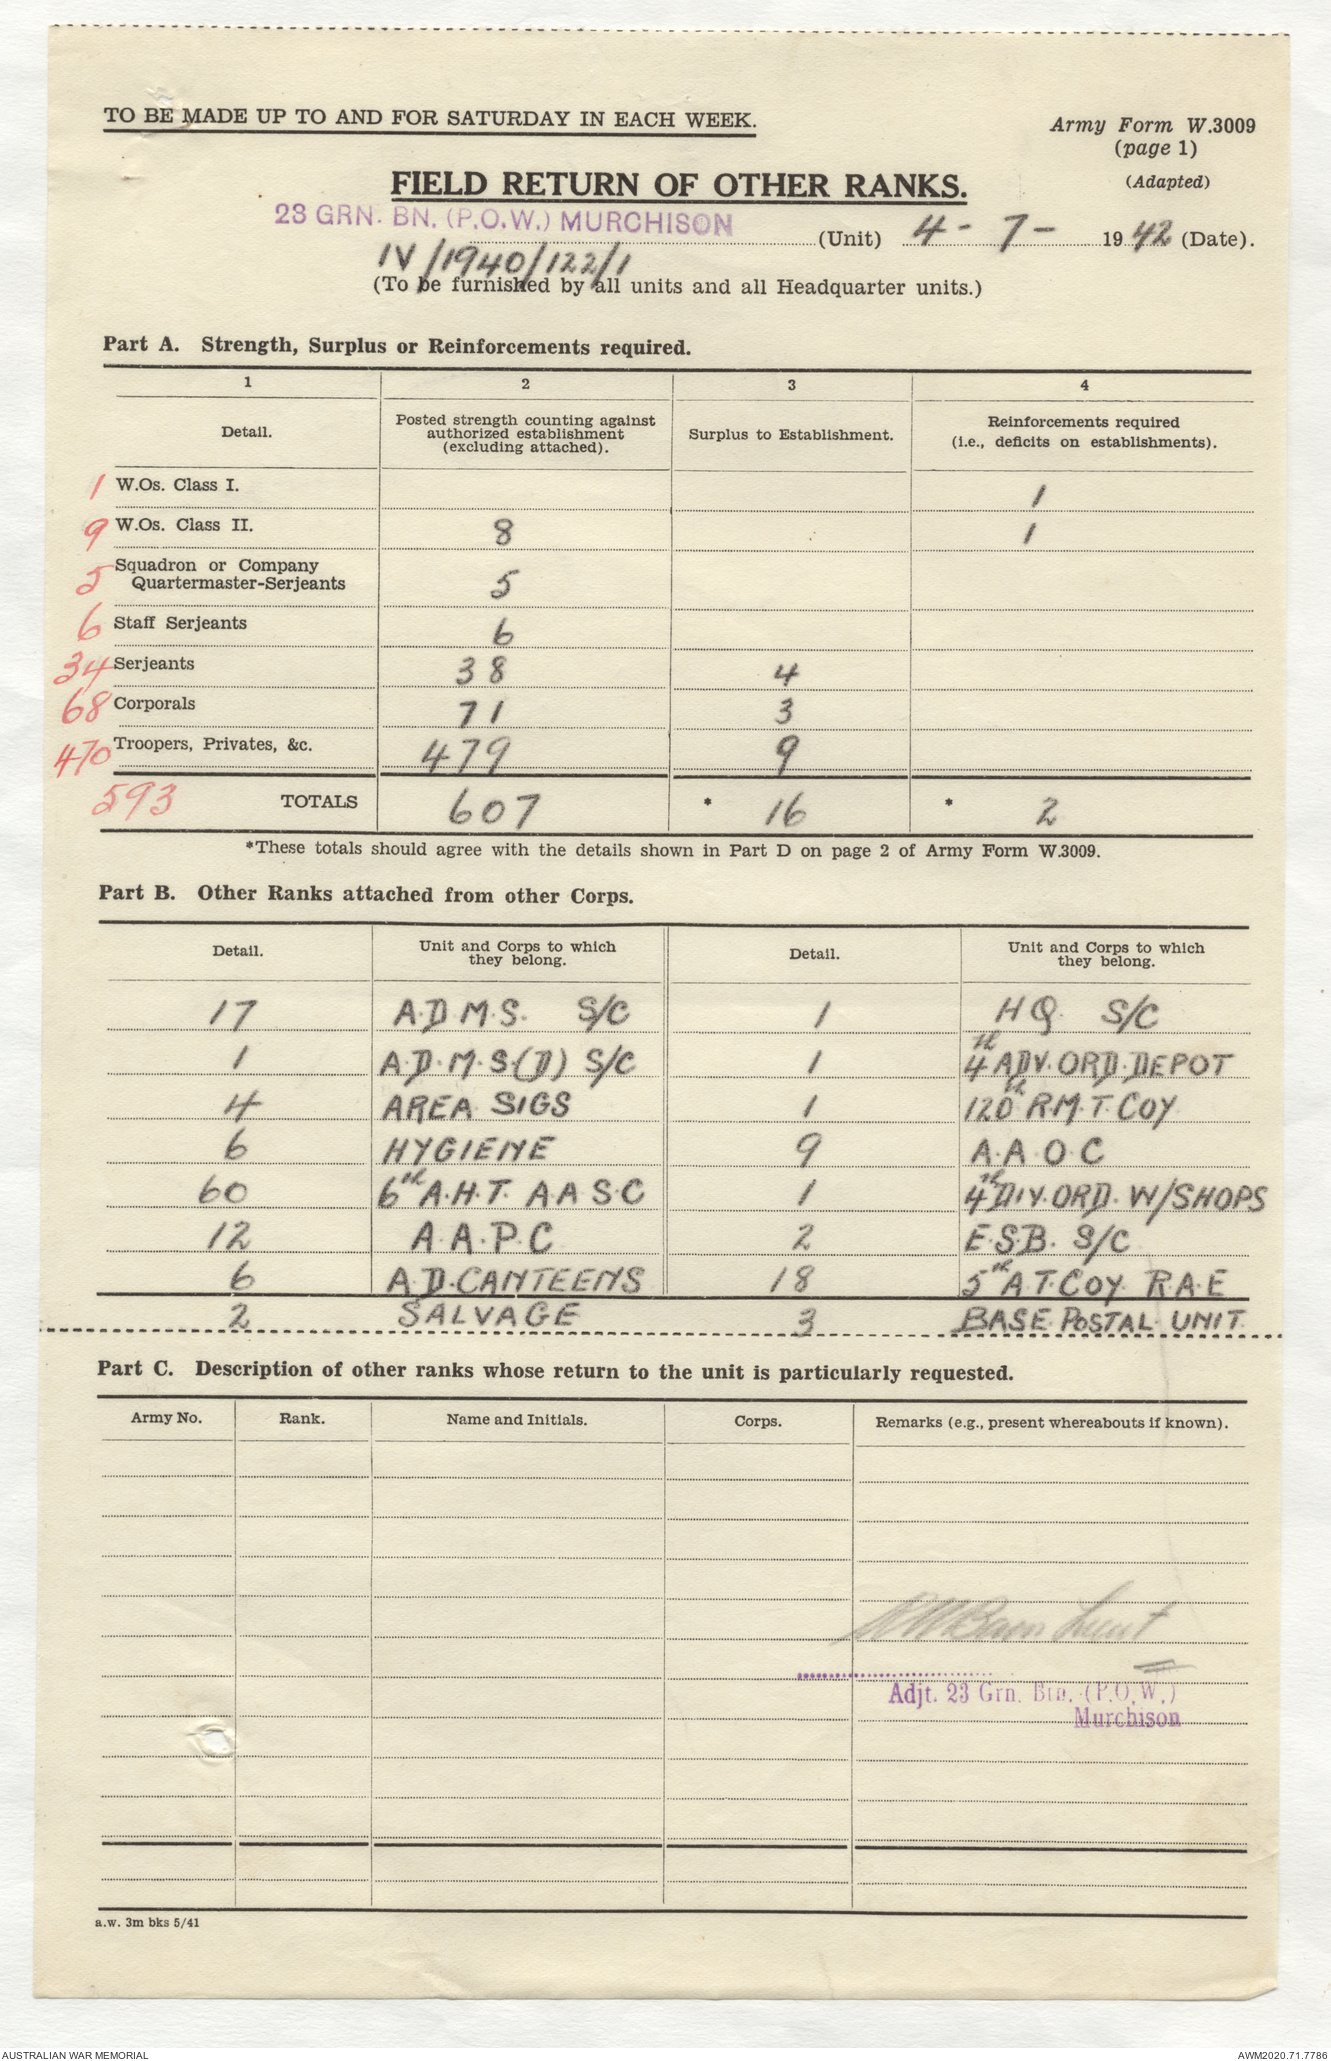 TO BE MADE UP TO AND FOR SATURDAY IN EACH WEEK.
Army Form W.3009
(page 1)
(Adapted)
FIELD RETURN OF OTHER RANKS.
23 GRN. BN. (P.O.W.) MURCHISON (Unit) 4 - 7 - 1942 (Date).
IV/1940/122/1
(To be furnished by all units and all Headquarter units.)
Part A. Strength, Surplus or Reinforcements required.
1 2 3 4
Detail. Posted strength counting against authorized establishment (excluding attached). Surplus to Establishment. Reinforcements required (i.e., deficits on establishments).
1 W.Os. Class I. 1
9 W.Os. Class II. 8 1
5 Squadron or Company Quartermaster-Serjeants 5
6 Staff Serjeants 6
34 Serjeants 38 4
68 Corporals 71 3
470 Troopers, Privates, &c. 479 9
593 TOTALS 607 * 16 * 2
*These totals should agree with the details shown in Part D on page 2 of Army Form W.3009.
Part B. Other Ranks attached from other Corps.
Detail. Unit and Corps to which they belong. Detail. Unit and Corps to which they belong.
17 A.D.M.S. S/C 1 HQ. S/C
1 A.D.M.S.(D) S/C 1 4th ADV. ORD. DEPOT
4 AREA SIGS 1 120th R.M.T. COY
6 HYGIENE 9 A.A.O.C
60 6th A.H.T. A.A.S.C 1 4th DIV. ORD. W/SHOPS
12 A.A.P.C 2 E.S.B. S/C
6 A.D.CANTEENS 18 5th A.T. COY. R.A.E
2 SALVAGE 3 BASE POSTAL UNIT.
Part C. Description of other ranks whose return to the unit is particularly requested.
Army No. Rank. Name and Initials. Corps. Remarks (e.g., present whereabouts if known).
Lieut
Adjt. 23 Grn. Btn. (P.O.W.)
Murchison
a.w. 3m bks 5/41
AUSTRALIAN WAR MEMORIAL AWM2020.71.7786